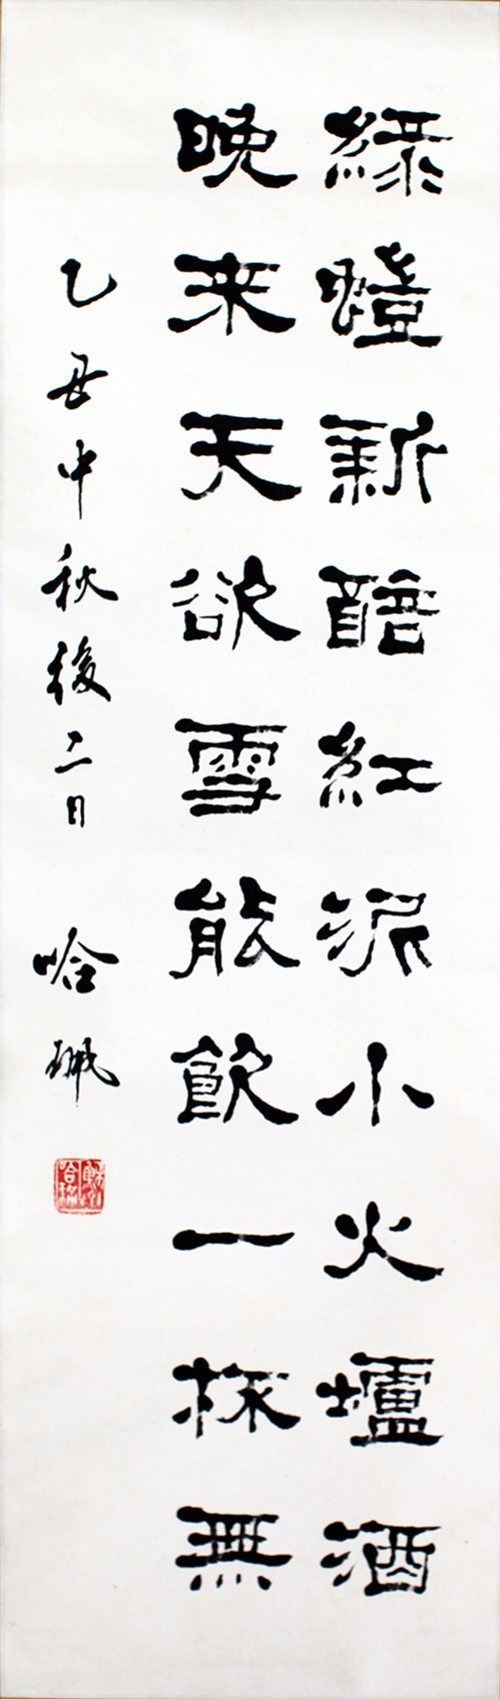 綠螘新醅紅泥小火壚酒
晚来天欲雪能飲一杯無
乙丑中秋後二日 哈珮